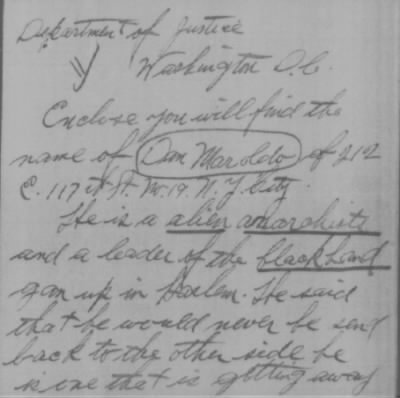 Department of Justice
Washington D.C.
Enclose you will find the
name of Dan Maroldo of 212
E. 117th St. N. Y City.
He is a alien anarchists
and a leader of the blackhand
gan up in Harlem. He said
that he would never be send
back to the other side he
is one that is getting away